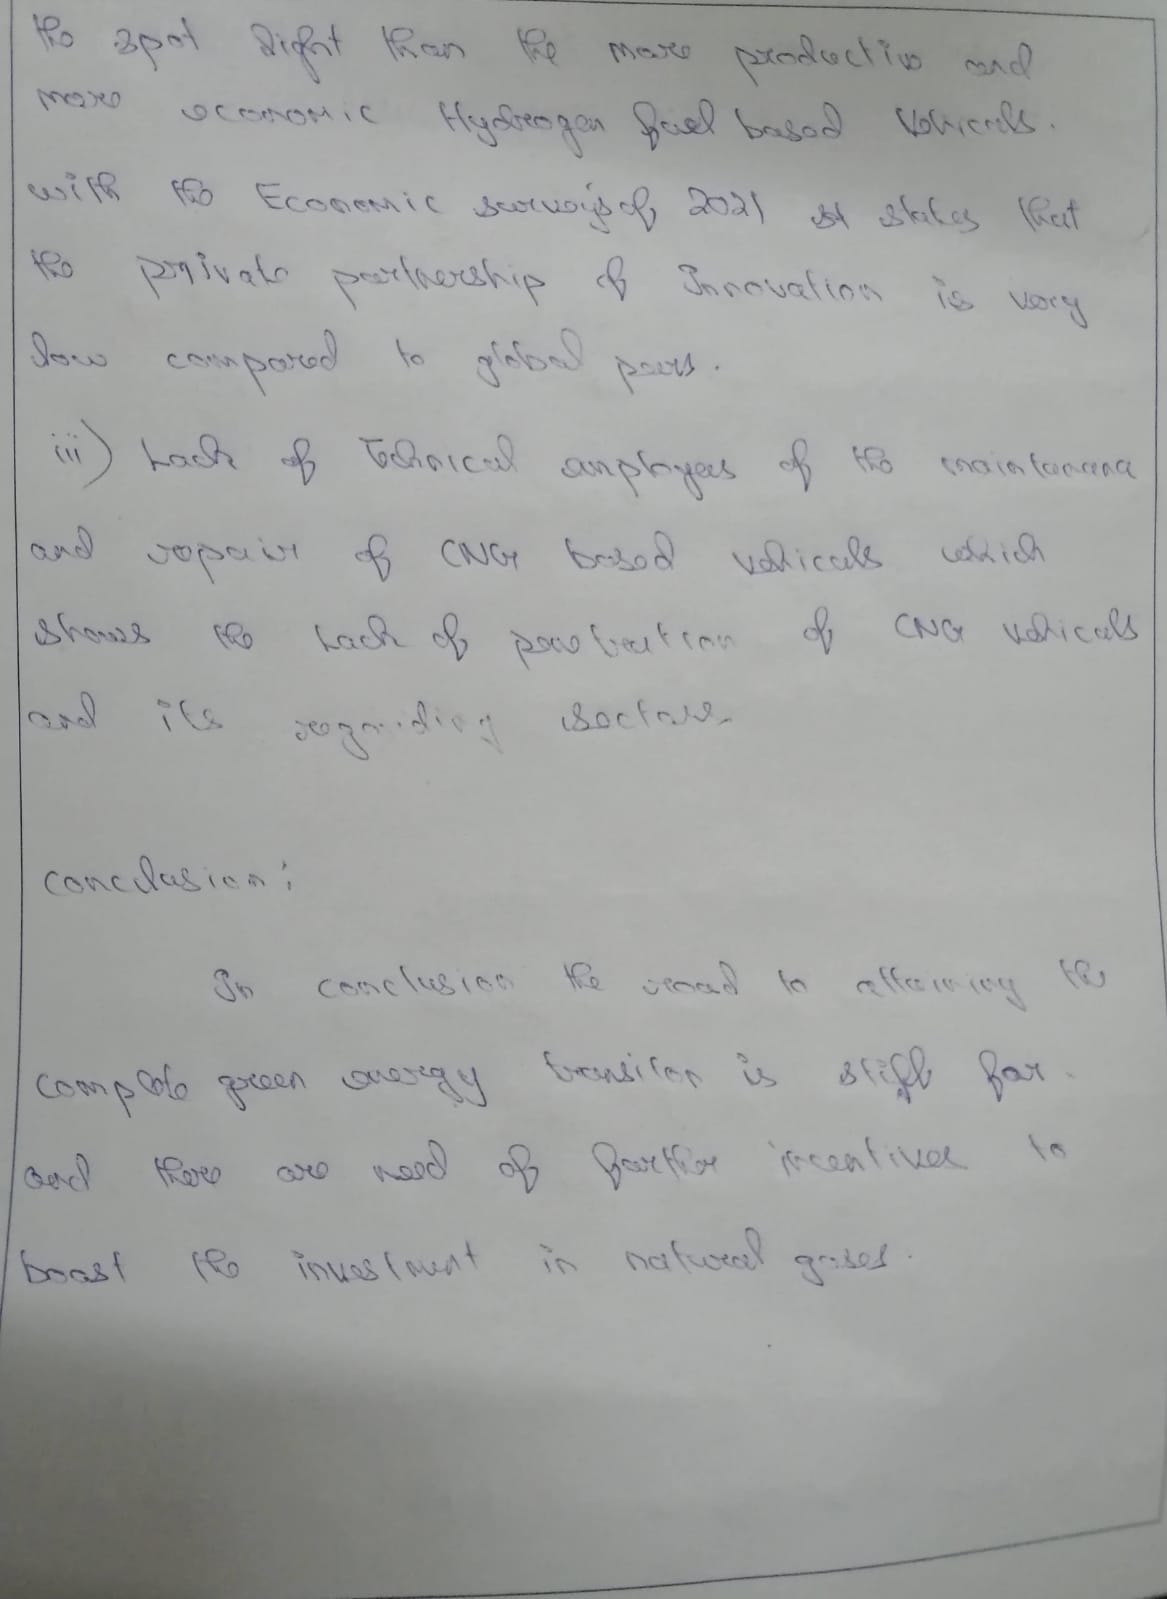 the spot light than the more productive and
more economic Hydrogen fuel based Vehicals.
with the Economic surveys of 2021 it states that
the private partnership of Innovation is very
low compared to global peers.
iii) Lack of Tehnical employees of the maintanana
and repair of CNG based vehicals which
shows the Lack of penetration of CNG vehicals
and its regarding sectors.
Conclusion:
In conclusion the road to attaining the
complete green energy transiton is still far.
and there are need of further incentives to
boost the investment in natural gases.